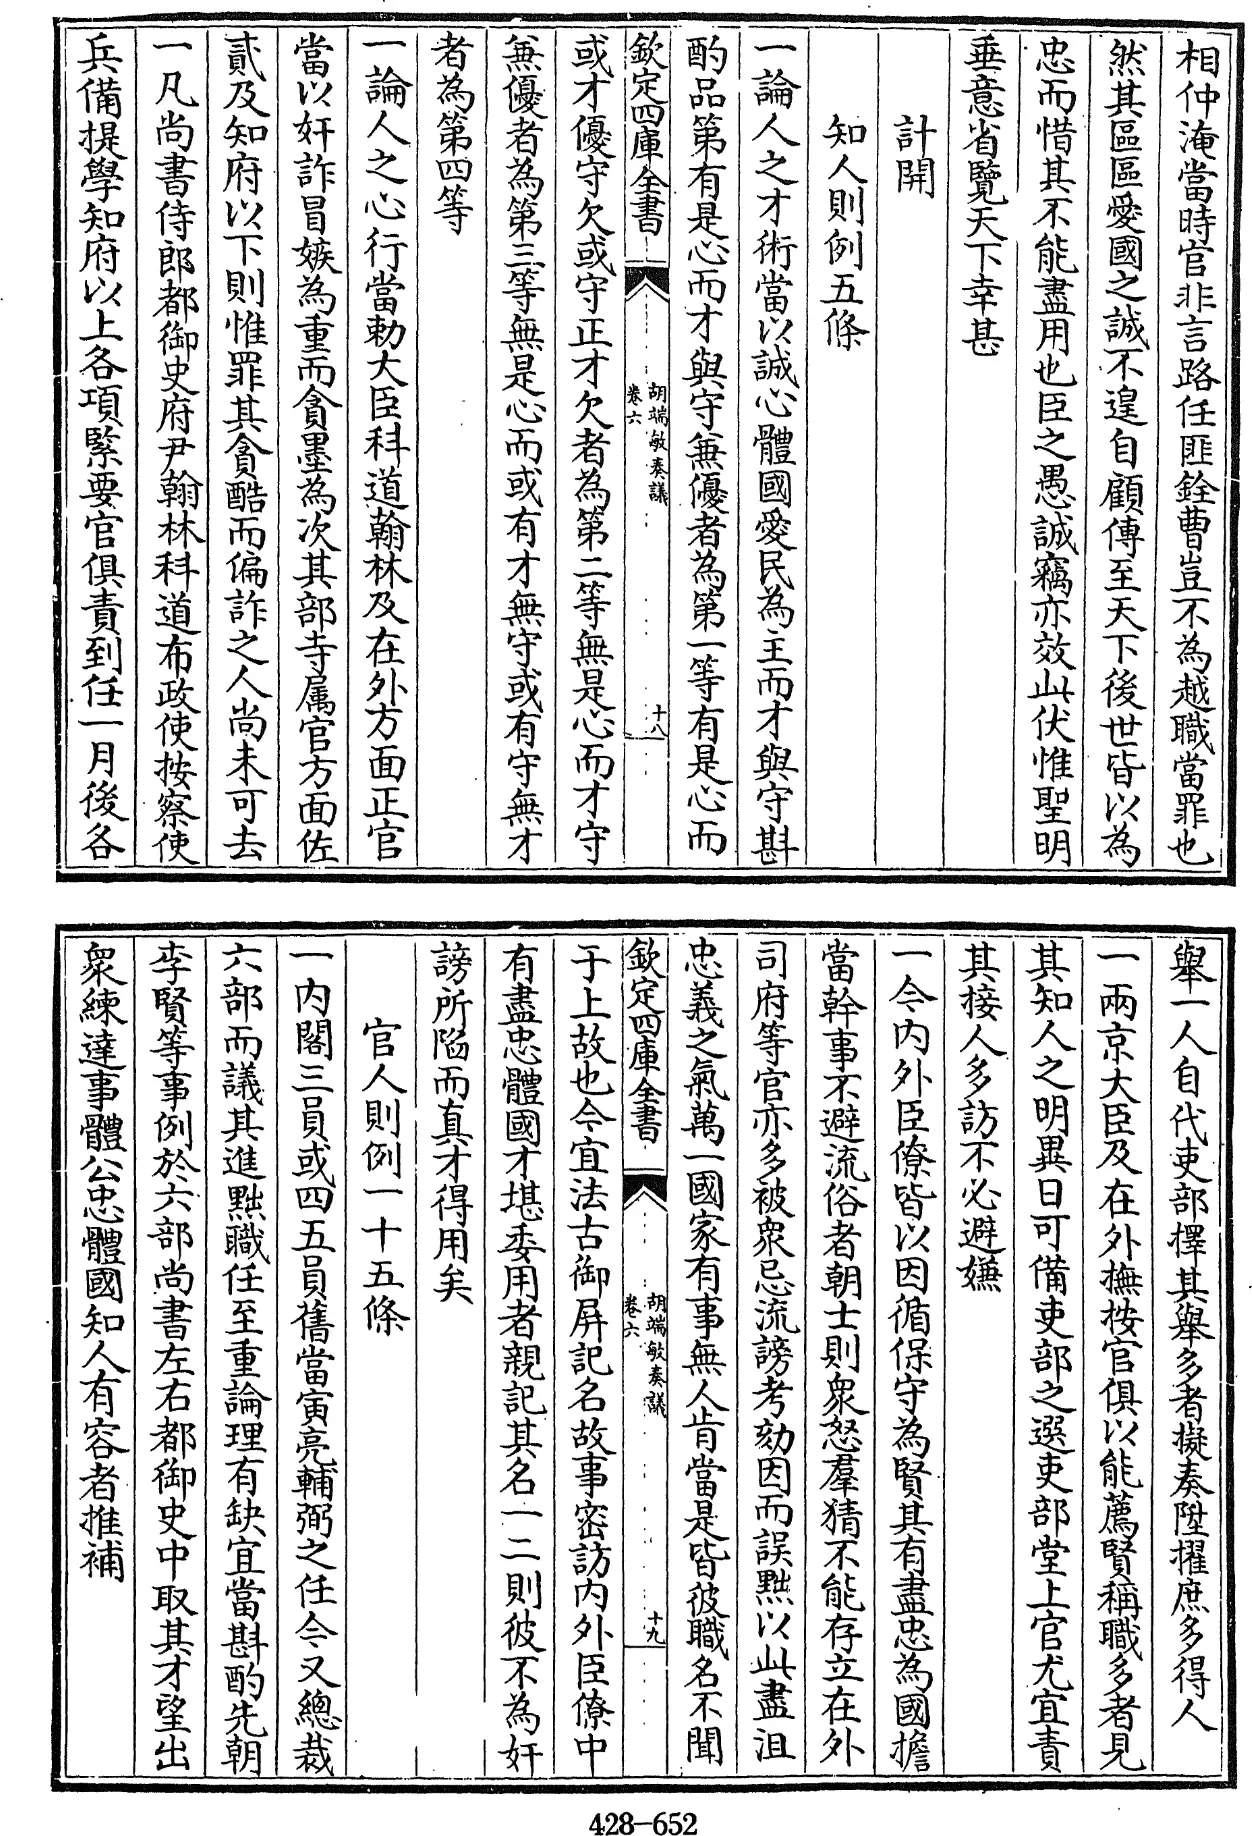 相仲淹當時官非言路任匪銓曹豈不為越職當罪也
然其區區愛國之誠不遑自顧傳至天下後世皆以為
忠而惜其不能盡用也臣之愚誠竊亦效此伏惟聖明
垂意省覽天下幸甚
計開
知人則例五條
一論人之才術當以誠心體國愛民為主而才與守斟
酌品第有是心而才與守兼優者為第一等有是心而
欽定四庫全書
胡端敏奏議
卷六
十八
或才優守欠或守正才欠者為第二等無是心而才守
兼優者為第三等無是心而或有才無守或有守無才
者為第四等
一論人之心行當勅大臣科道翰林及在外方面正官
當以奸詐冒嫉為重而貪墨為次其部寺属官方面佐
貳及知府以下則惟罪其貪酷而偏詐之人尚未可去
一凡尚書侍郎都御史府尹翰林科道布政使按察使
兵備提學知府以上各項緊要官俱責到任一月後各
舉一人自代吏部擇其舉多者擬奏陞擢庶多得人
一兩京大臣及在外撫按官俱以能薦賢稱職多者見
其知人之明異日可備吏部之選吏部堂上官尤宜責
其接人多訪不必避嫌
一今内外臣僚皆以因循保守為賢其有盡忠為國擔
當幹事不避流俗者朝士則衆怒羣猜不能存立在外
司府等官亦多被衆忌流謗考劾因而誤黜以此盡沮
忠義之氣萬一國家有事無人肯當是皆彼職名不聞
欽定四庫全書
胡端敏奏議
卷六
十九
于上故也今宜法古御屏記名故事密訪内外臣僚中
有盡忠體國才堪委用者親記其名一二則彼不為奸
謗所陷而真才得用矣
官人則例一十五條
一内閣三員或四五員舊當寅亮輔弼之任今又總裁
六部而議其進黜職任至重論理有缺宜當斟酌先朝
李賢等事例於六部尚書左右都御史中取其才望出
衆練達事體公忠體國知人有容者推補
428-652